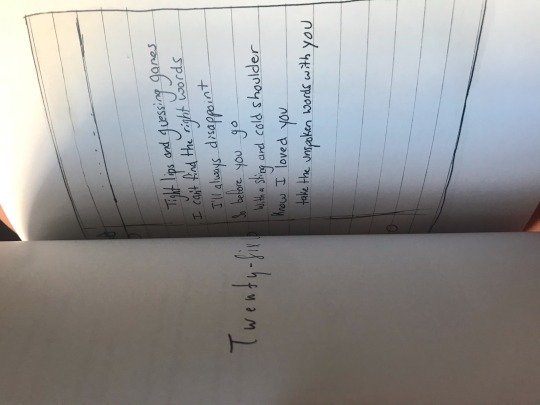 Twenty-five
Tight lips and guessing games
I can't find the right words
I'll always disappoint
So before you go
With a sting and cold shoulder
Know I loved you
take the unspoken words with you